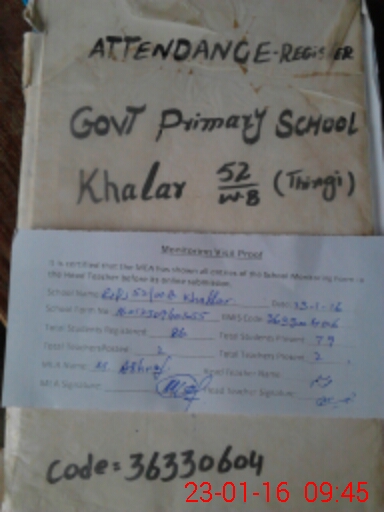 ATTENDANCE-REGISTER
GOVT Primary SCHOOL
Khalar 52/W-B (Thingi)
Monitoring Visit Proof
It is certified that the MEA has shown all entries of the School Monitoring Form to
the Head Teacher before its online submission.
School Name: 52/WB Khallar Date: 23-1-16
School Form No. EMIS Code:
Total Students Registered: 86 Total Students Present: 79
Total Teachers Posted: 2 Total Teachers Present: 2
MEA Name: M. Ashraf Head Teacher Name:
MEA Signature: Head Teacher Signature:
Code = 36330604
23-01-16 09:45